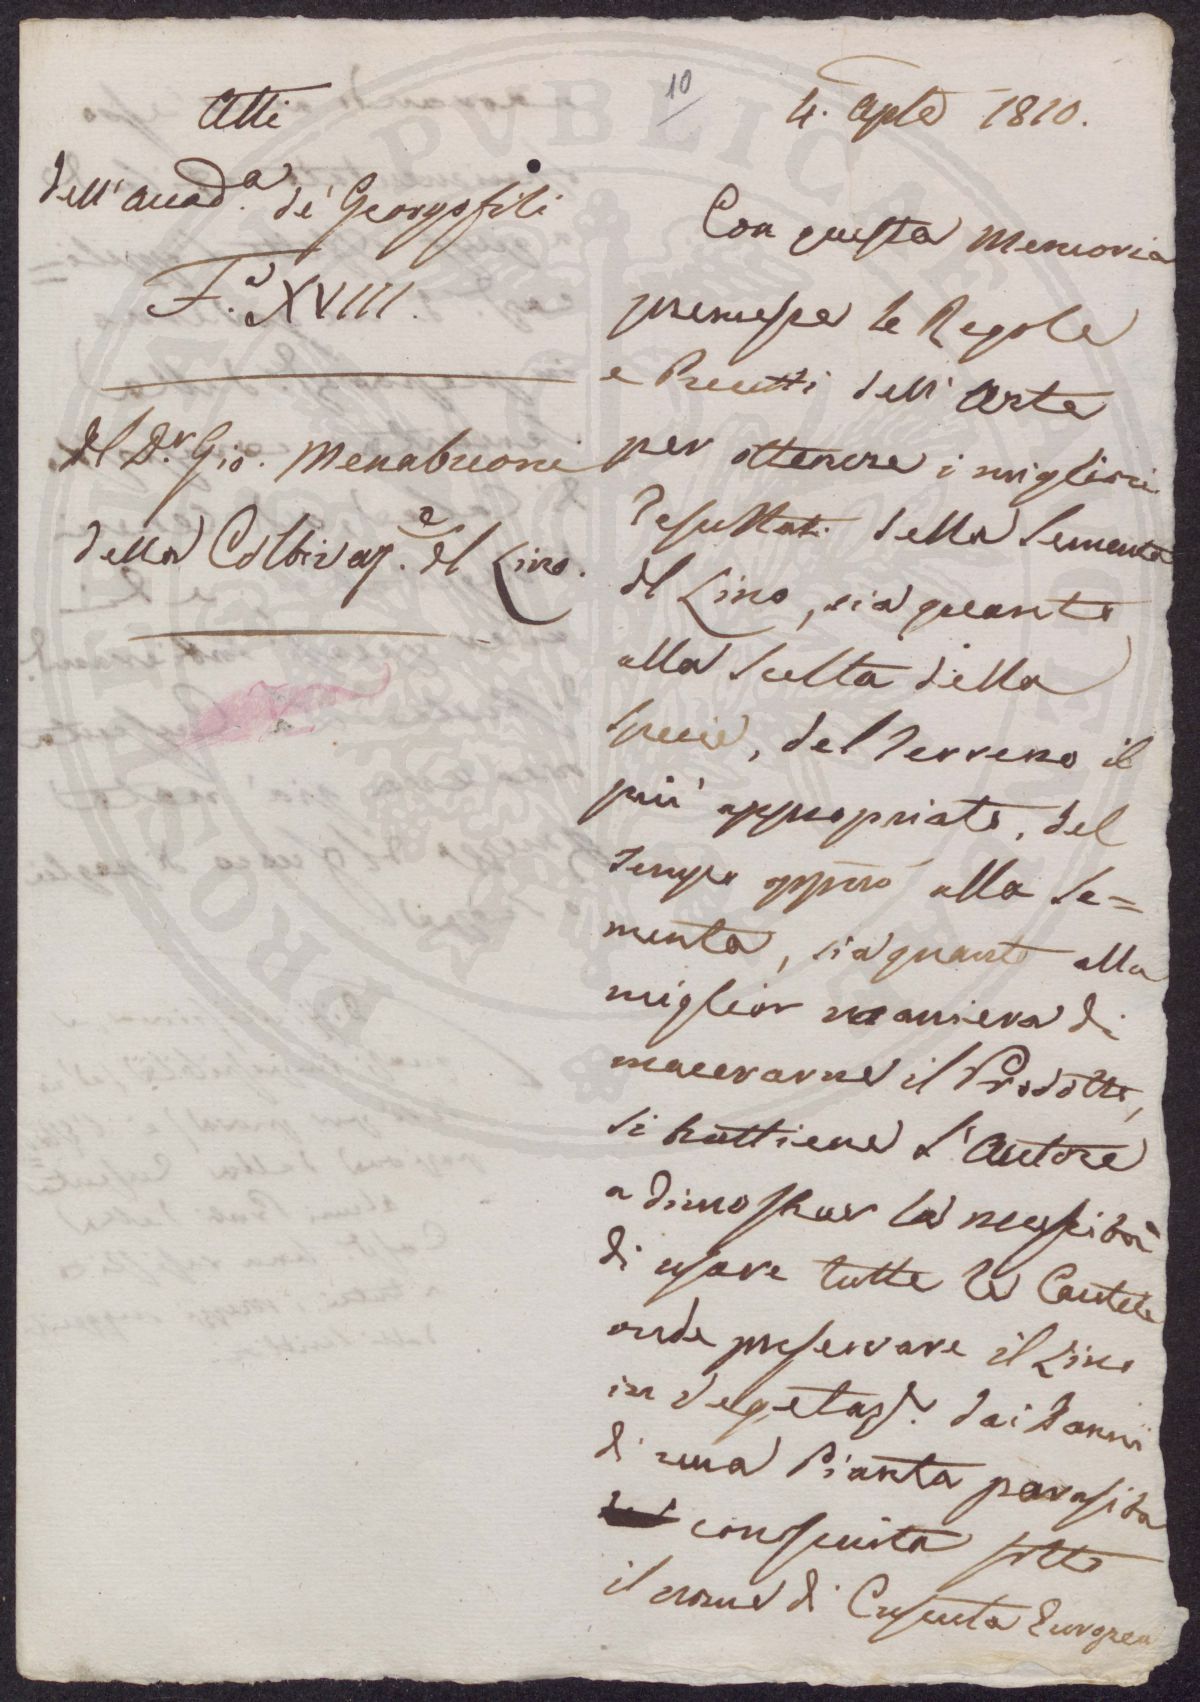 10
4. Aple 1810.
Atti
dell'Accad.a de' Georgofili
F.a XVIII.
Del D.r Gio. Menabuoni
della Coltivaz.e del Lino.
Con questa Memoria
premesse le Regole
e Precetti dell'Arte
per ottenere i migliori
resultati della Sementa
del Lino, sia quanto
alla Scelta della
Specie, del Terreno il
più appropriato, del
tempo opp.no alla Se=
menta, sia quanto alla
miglior maniera di
macerarne il Prodotto,
si trattiene l'Autore
a dimostrar la necessità
di usare tutte le Cautele
onde preservare il Lino
in vegetaz.e dai danni
di una Pianta parasita
conosciuta sotto
il nome di Cuscuta Europea